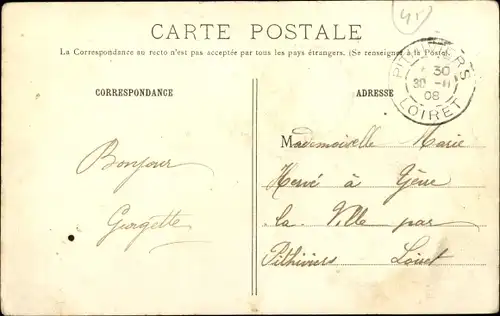 45
CARTE POSTALE
La Correspondance au recto n'est pas acceptée par tous les pays étrangers. (Se renseigner à la Poste).
PITHIVIERS
30
30 -11
08
LOIRET
CORRESPONDANCE
ADRESSE
Bonjour
Georgette
Mademoiselle Marie
Hervé à
la Ville par
Pithiviers Loiret